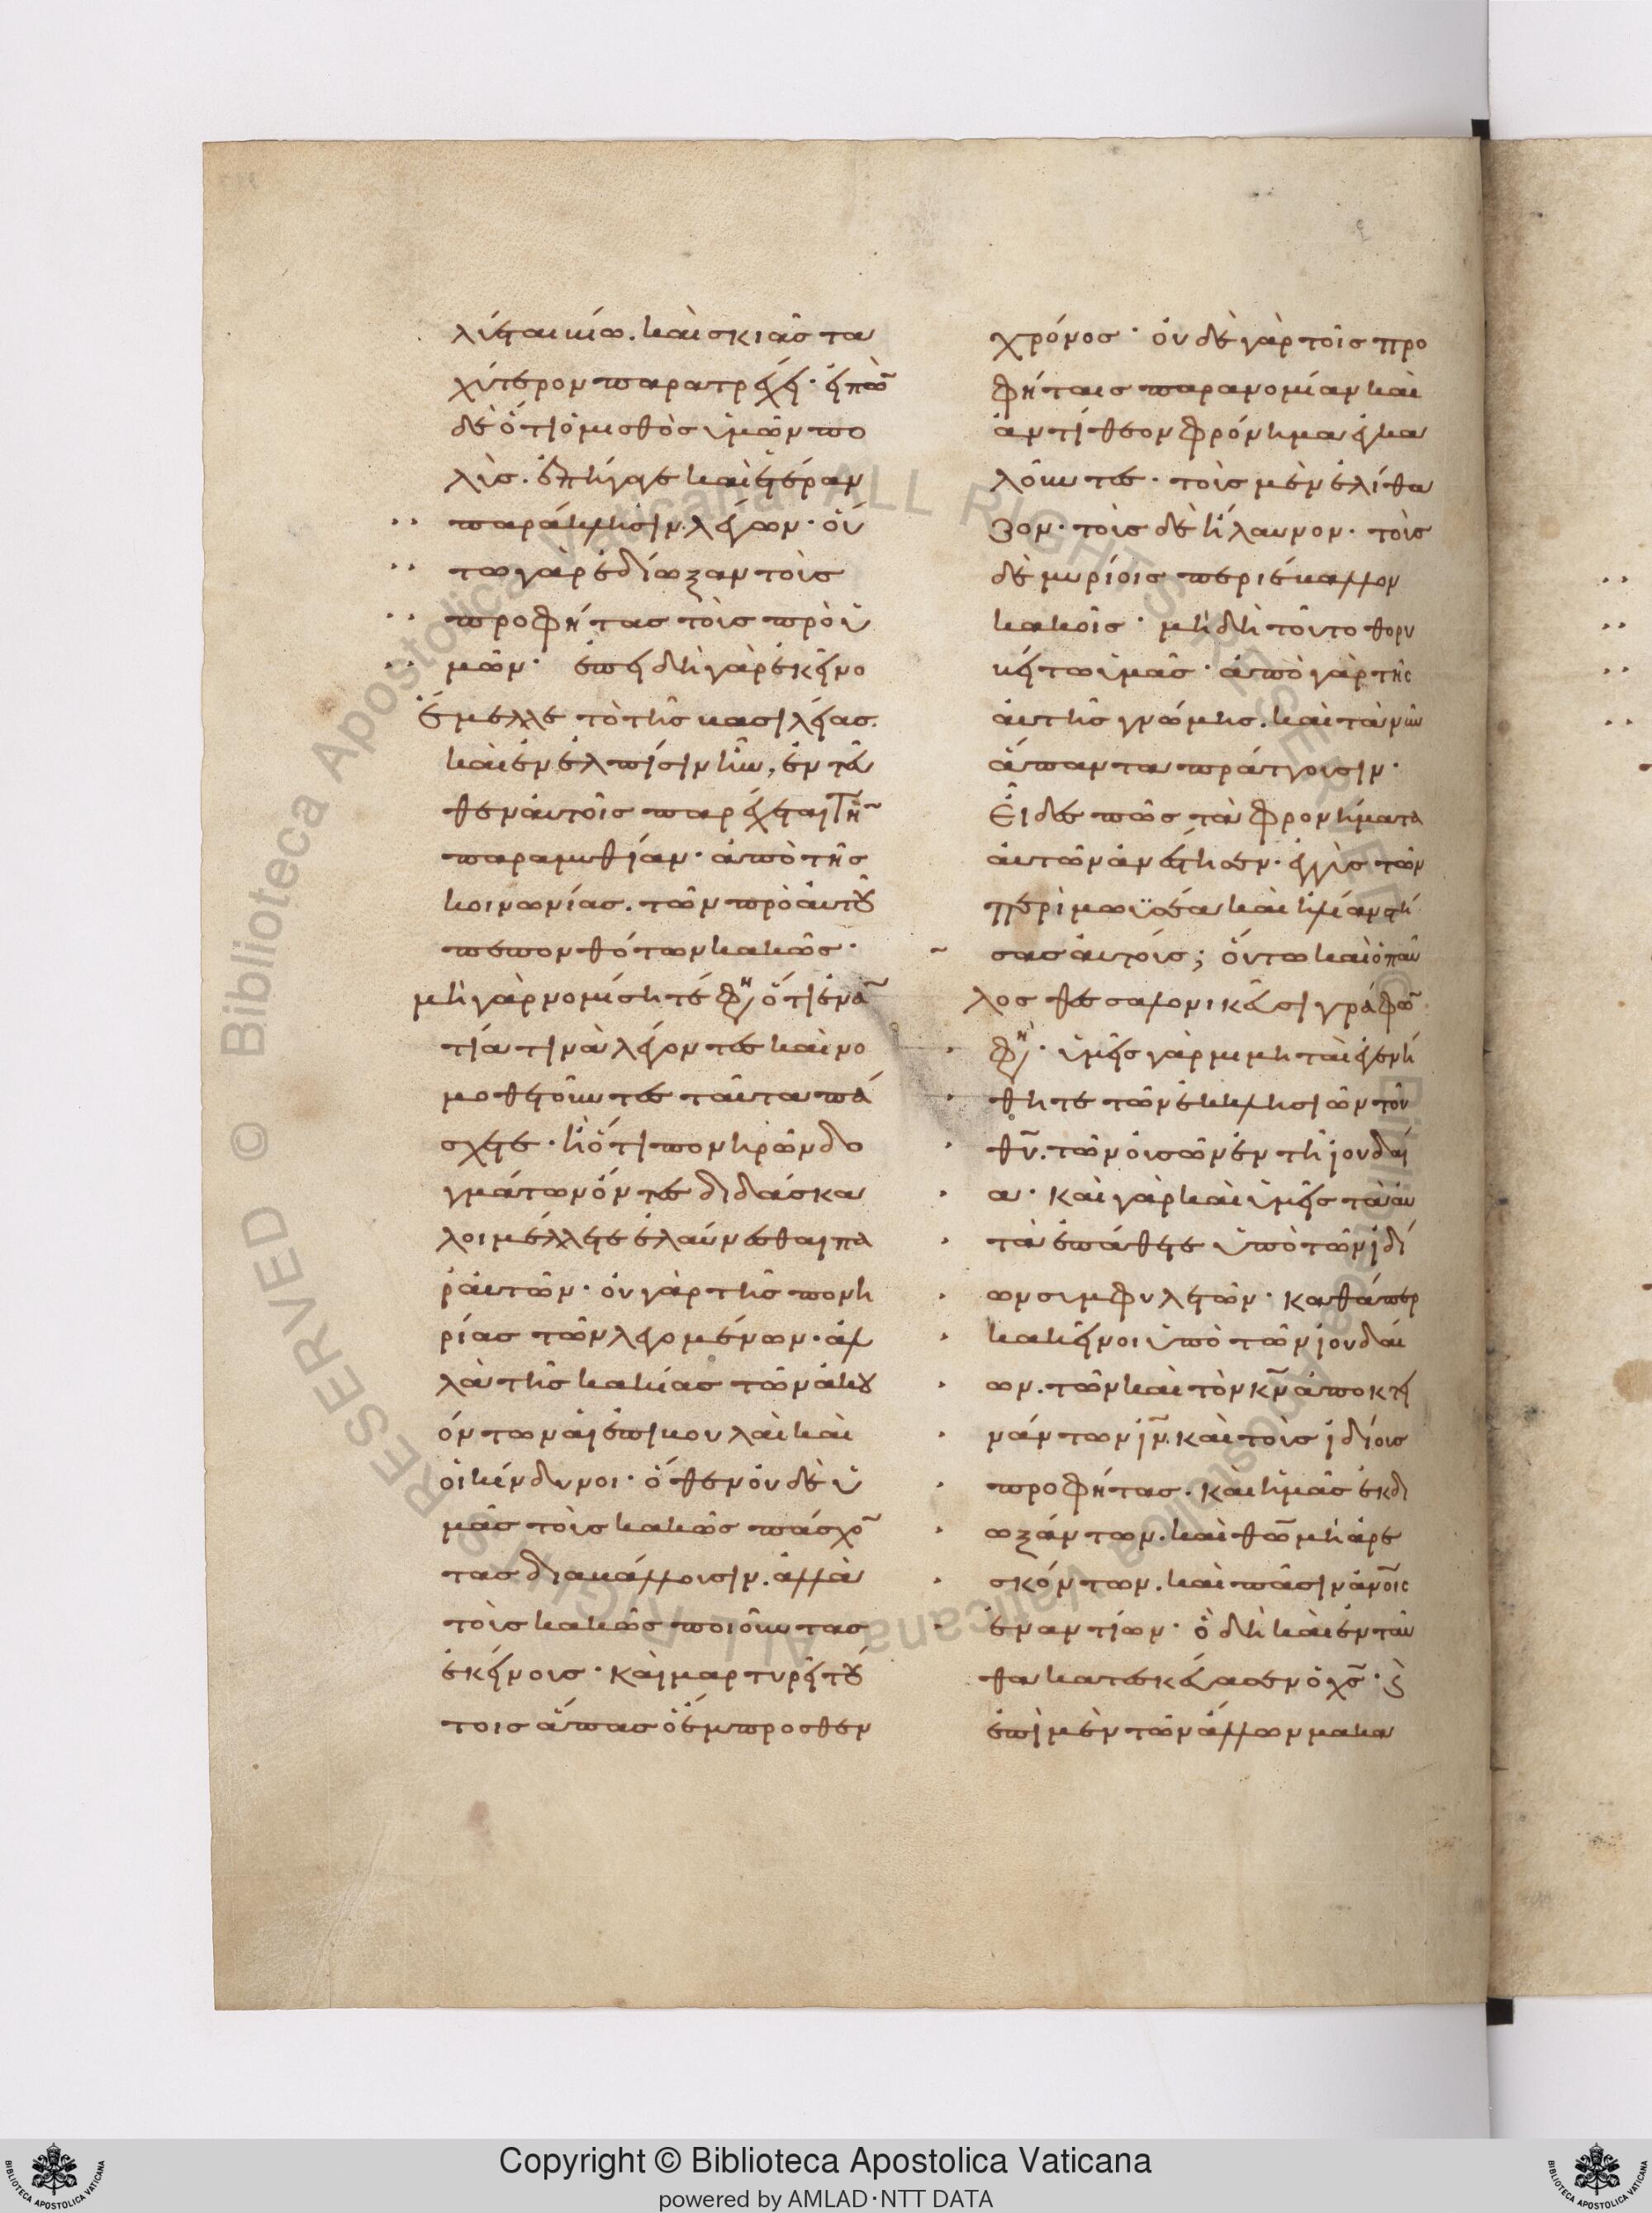 λύεται βίω. καὶ σκιᾶς τα
χύτερον παρατρέχει· εἰπὼ̅
δὲ ὅτι ὁ μισθὸς ὑμῶν πο
λὺς. ἐπήγαγε καὶ ἑτέραν
παράκλησιν. λέγων· οὕ
τω γὰρ ἐδίωξαν τοὺς
προφήτας τοὺς πρὸ ὑ
μῶν· ἐπειδὴ γὰρ ἐκεῖνο
ἔμελλε τὸ τῆς βασιλείας.
καὶ ἐν ἐλπίσιν ἦν, ἐντεῦ
θεν αὐτοῖς παρέχεται τὴ̅
παραμυθίαν· ἀπὸ τῆς
κοινωνίας. τῶν πρὸ αὐτοῦ
πεπονθότων κακῶς·
μὴ γὰρ νομίσητέ φη ὅτι ἐνα̅
τία τινὰ λέγοντες καὶ νο
μοθετοῦντες ταῦτα πά
σχετε· ἢ ὅτι πονηρῶν δο
γμάτων ὄντες διδάσκα
λοι μέλλετε ἐλαύνεσθαι πα
ρ' αὐτῶν· οὐ γὰρ τῆς πονη
ρίας τῶν λεγομένων. ἀλ
λὰ τῆς κακίας τῶν ἀκου
όντων αἱ ἐπιβουλαὶ καὶ
οἱ κίνδυνοι· ὅθεν οὐδὲ ὑ
μᾶς τοὺς κακῶς πάσχο̅
τας διαβάλλουσιν. ἀλλὰ
τοὺς κακῶς ποιοῦντας
ἐκείνους· καὶ μαρτυρεῖ τού
τοις ἅπας ὁ ἔμπροσθεν
χρόνος· οὐδὲ γὰρ τοῖς προ
φήταις παρανομίαν καὶ
ἀντίθεον φρόνημα ἐγκα
λοῦντες· τοὺς μὲν ἐλίθα
ζον· τοὺς δὲ ἤλαυνον· τοὺς
δὲ μυρίοις περιέβαλλον
κακοῖς· μὴ δὴ τοῦτο θορυ
βείτω ὑμᾶς· ἀπὸ γὰρ τῆς
αὐτῆς γνώμης. καὶ τὰ νῦν
ἅπαντα πράττουσιν·
Εἶδες πῶς τὰ φρονήματα
αὐτῶν ἀνέστησεν· ἐγγὺς τῶν
περὶ μωϋσέα καὶ ἠλίαν στή
σας αὐτούς; οὕτω καὶ ὁ παῦ
λος θεσσαλονικεῦσι γράφω̅
φη· ὑμεῖς γὰρ μιμηταὶ ἐγενή
θητε τῶν ἐκκλησιῶν τοῦ
θ̅υ̅. τῶν οὐσῶν ἐν τῇ ἰουδαί
α· καὶ γὰρ καὶ ὑμεῖς τὰ αὐ
τὰ ἐπάθετε ὑπὸ τῶν ἰδί
ων συμφυλετῶν· καθάπερ
κακεῖνοι ὑπὸ τῶν ἰουδαί
ων. τῶν καὶ τὸν κ̅ν̅ ἀποκτει
νάντων ι̅ν̅. καὶ τοὺς ἰδίους
προφήτας. καὶ ἡμᾶς ἐκδι
ωξάντων. καὶ θ̅ω̅ μὴ ἀρε
σκόντων. καὶ πᾶσιν ἀν̅οις
ἐναντίων· ὃ δὴ καὶ ἐνταῦ
θα κατεσκεύασεν ὁ χ̅ς̅· καὶ
ἐπὶ μὲν τῶν ἄλλων μακα